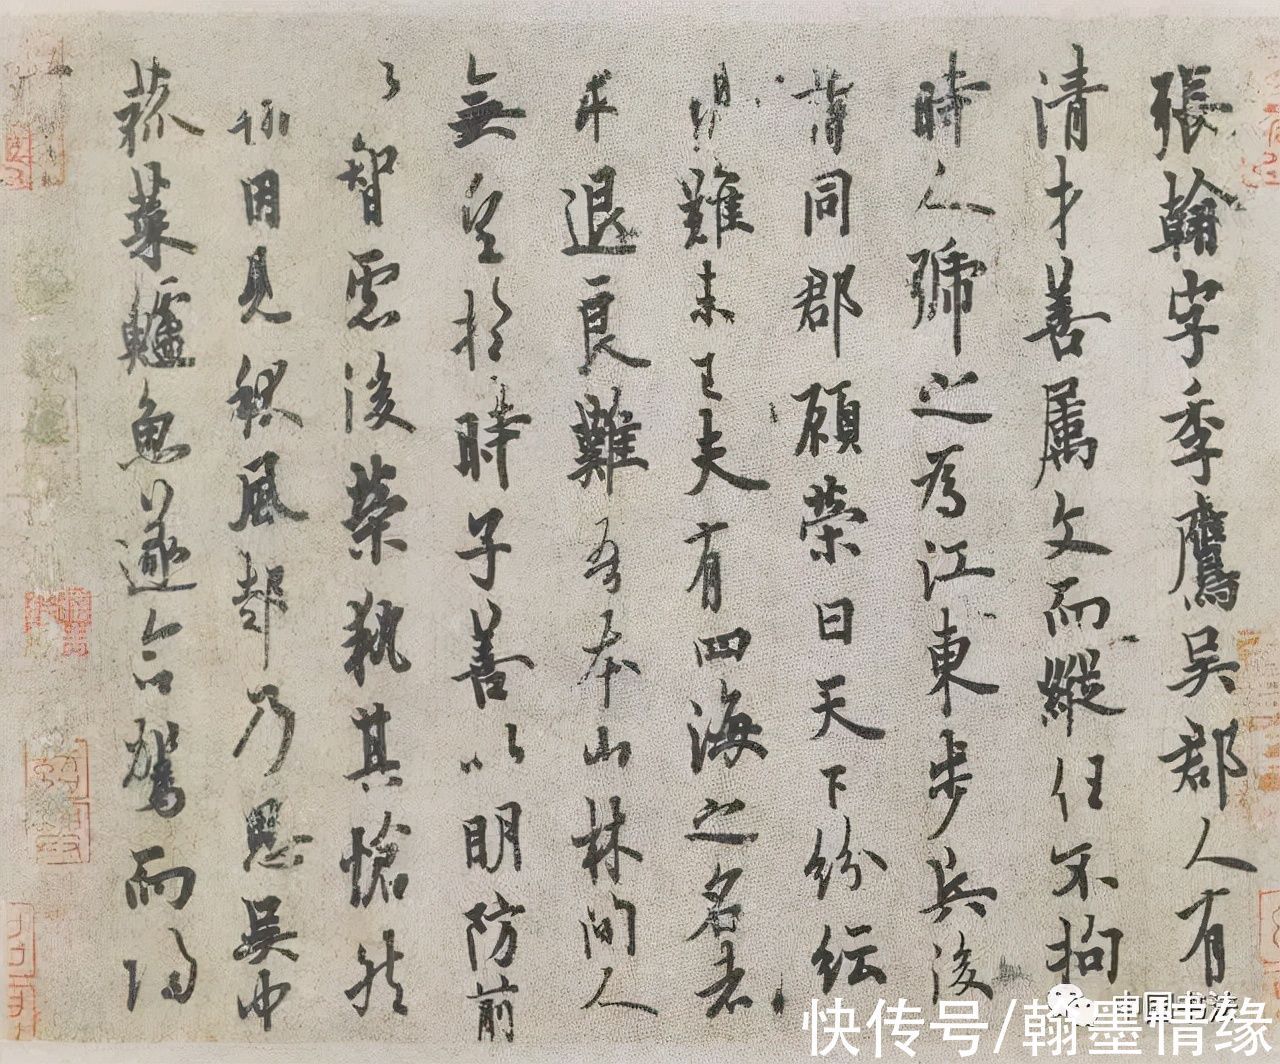 張翰字季鷹吳郡人有
清才善属文而縱任不拘
時人號之為江東步兵後
謂同郡顧榮曰天下紛紜
難未已夫有四海之名者
求退良難吾本山林間人
無望於時子善以明防前
以智慮後榮執其愴然
因見秋風起乃思吳中
菰菜鱸魚遂命駕而歸
中国书法
快传号/翰墨情缘